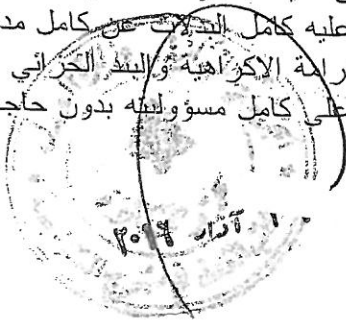 عليه كامل البدلات عن كامل مد
رامة الاكراهية والبند الجزائي
على كامل مسؤوليته بدون حاجـ
آذار